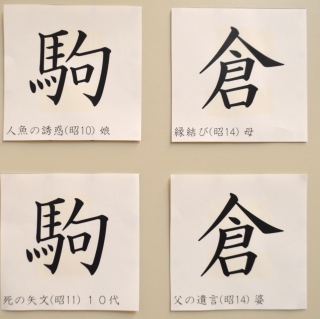 駒
人魚の誘惑(昭10) 娘
倉
縁結び(昭14) 母
駒
死の矢文(昭11) 10代
倉
父の遺言(昭14) 婆